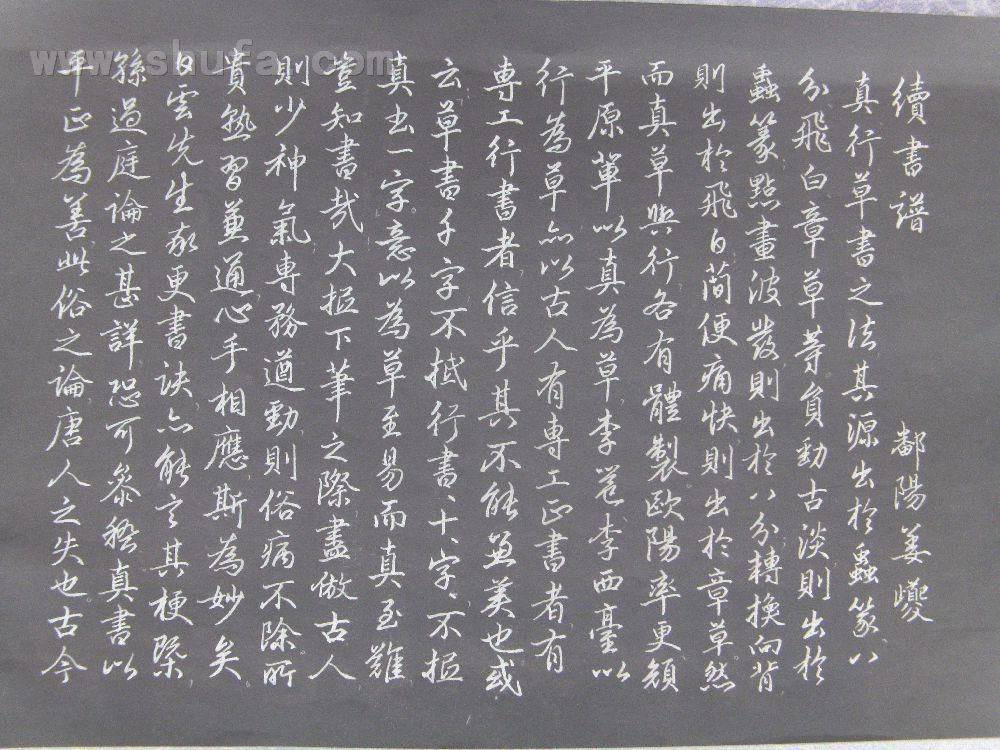 續書譜 鄱陽姜夔
真行草書之法其源出於蟲篆八
分飛白章草等員勁古淡則出於
蟲篆點畫波發則出於八分轉換向背
則出於飛白簡便痛快則出於章草然
而真草與行各有體製歐陽率更顏
平原輩以真為草李邕李西臺以
行為草亦以古人有專工正書者有
專工行書者信乎其不能兼美也或
云草書千字不抵行書、十、字、不抵
真書一字意以為草至易而真至難
豈知書哉大抵下筆之際盡倣古人
則少神氣專務遒勁則俗病不除所
貴熟習兼通心手相應斯為妙矣
白雲先生更書訣亦能言其梗槩
孫過庭論之甚詳恐可參稽真書以
平正為善此俗之論唐人之失也古今
www.shufa.com